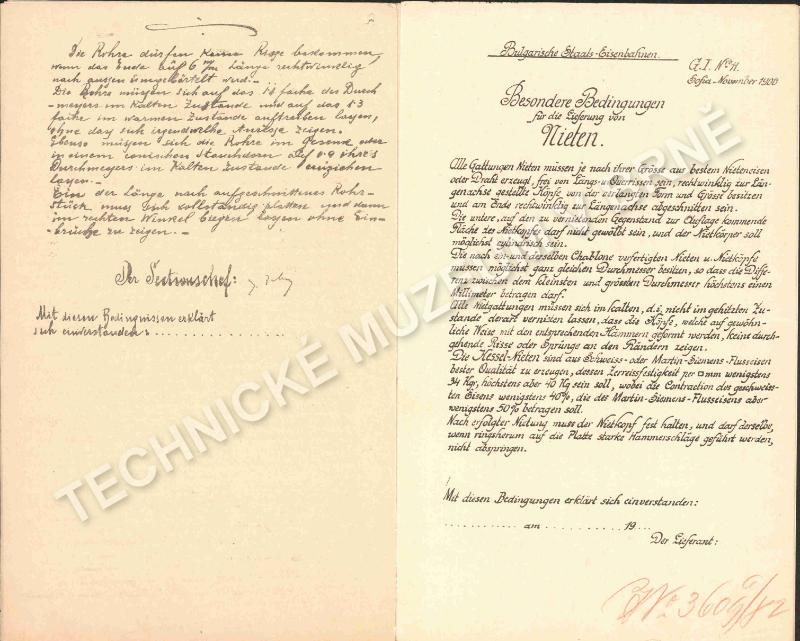 Die Rohre dürfen keine Risse bekommen,
wenn das Ende auf 6 m/m Länge rechtwinklig
nach aussen umgebörtelt wird.
Die Rohre müssen sich auf das 1·1 fache des Durch-
messers im kalten Zustande und auf das 1·3
fache im warmen Zustande auftreiben lassen,
ohne dass sich irgendwelche Anrisse zeigen.
Ebenso müssen sich die Rohre im Gesenk oder
in einem conischen Stauchdorn auf 0·9 ihres
Durchmessers im kalten Zustande einziehen
lassen.-
Ein der Länge nach aufgeschnittenes Rohr-
stück muss sich vollständig platten und dann
im rechten Winkel biegen lassen ohne Ein-
brüche zu zeigen.-
Der Sectionschef:
Mit diesen Bedingnissen erklärt
sich einverstanden: . . . . . . . . . . . . . . . .
Bulgarische Staats-Eisenbahnen.
G.I. No 11.
Sofia - November 1900
Besondere Bedingungen
für die Lieferung von
Nieten.
Alle Gattungen Nieten müssen je nach ihrer Grösse aus bestem Nieteneisen
oder Draht erzeugt, frei von Längs- u. Querrissen sein, rechtwinklig zur Län-
genachse gestellte Köpfe von der verlangten Form und Grösse besitzen
und am Ende rechtwinklig zur Längenachse abgeschnitten sein.
Die untere, auf den zu vernietenden Gegenstand zur Auflage kommende
Fläche des Nietkopfes darf nicht gewölbt sein, und der Nietkörper soll
möglichst cylindrisch sein.
Die nach ein- und derselben Chablone verfertigten Nieten u. Nietköpfe
müssen möglichst ganz gleichen Durchmesser besitzen, so dass die Diffe-
renz zwischen dem kleinsten und grössten Durchmesser höchstens einen
Millimeter betragen darf.
Alle Nietgattungen müssen sich im kalten, d.i. nicht im gehitzten Zu-
stande derart vernieten lassen, dass die Köpfe, welche auf gewöhn-
liche Weise mit den entsprechenden Hämmern geformt werden, keine durch-
gehende Risse oder Sprünge an den Rändern zeigen.
Die Kessel-Nieten sind aus Schweiss- oder Martin-Siemens-Flusseisen
bester Qualität zu erzeugen, dessen Zerreissfestigkeit per □mm wenigstens
34 Kgr, höchstens aber 40 Kg sein soll, wobei die Contraction des geschweiss-
ten Eisens wenigstens 40%, die des Martin-Siemens-Flusseisens aber
wenigstens 50% betragen soll.
Nach erfolgter Nietung muss der Nietkopf fest halten, und darf derselbe,
wenn ringsherum auf die Platte starke Hammerschläge geführt werden,
nicht abspringen.
Mit diesen Bedingungen erklärt sich einverstanden:
. . . . . . . . . . . . am . . . . . . . . . . 19 . . .
Der Lieferant:
No 360
TECHNICKÉ MUZEUM V BRNĚ